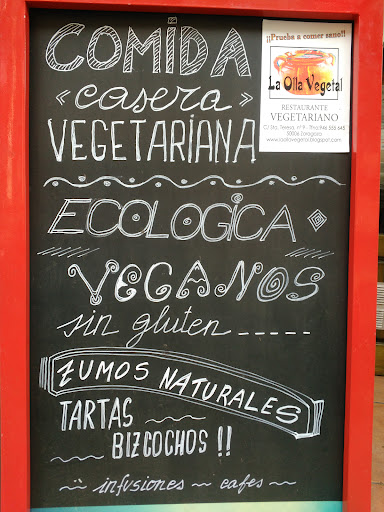 COMIDA
« casera »
VEGETARIANA
ECOLOGICA
VEGANOS
sin gluten _ _ _ _ _
ZUMOS NATURALES
TARTAS
BIZCOCHOS !!
infusiones ~ cafes ~
¡¡Prueba a comer sano!!
La Olla Vegetal
RESTAURANTE
VEGETARIANO
C/ Sta. Teresa, nº
Zaragoza